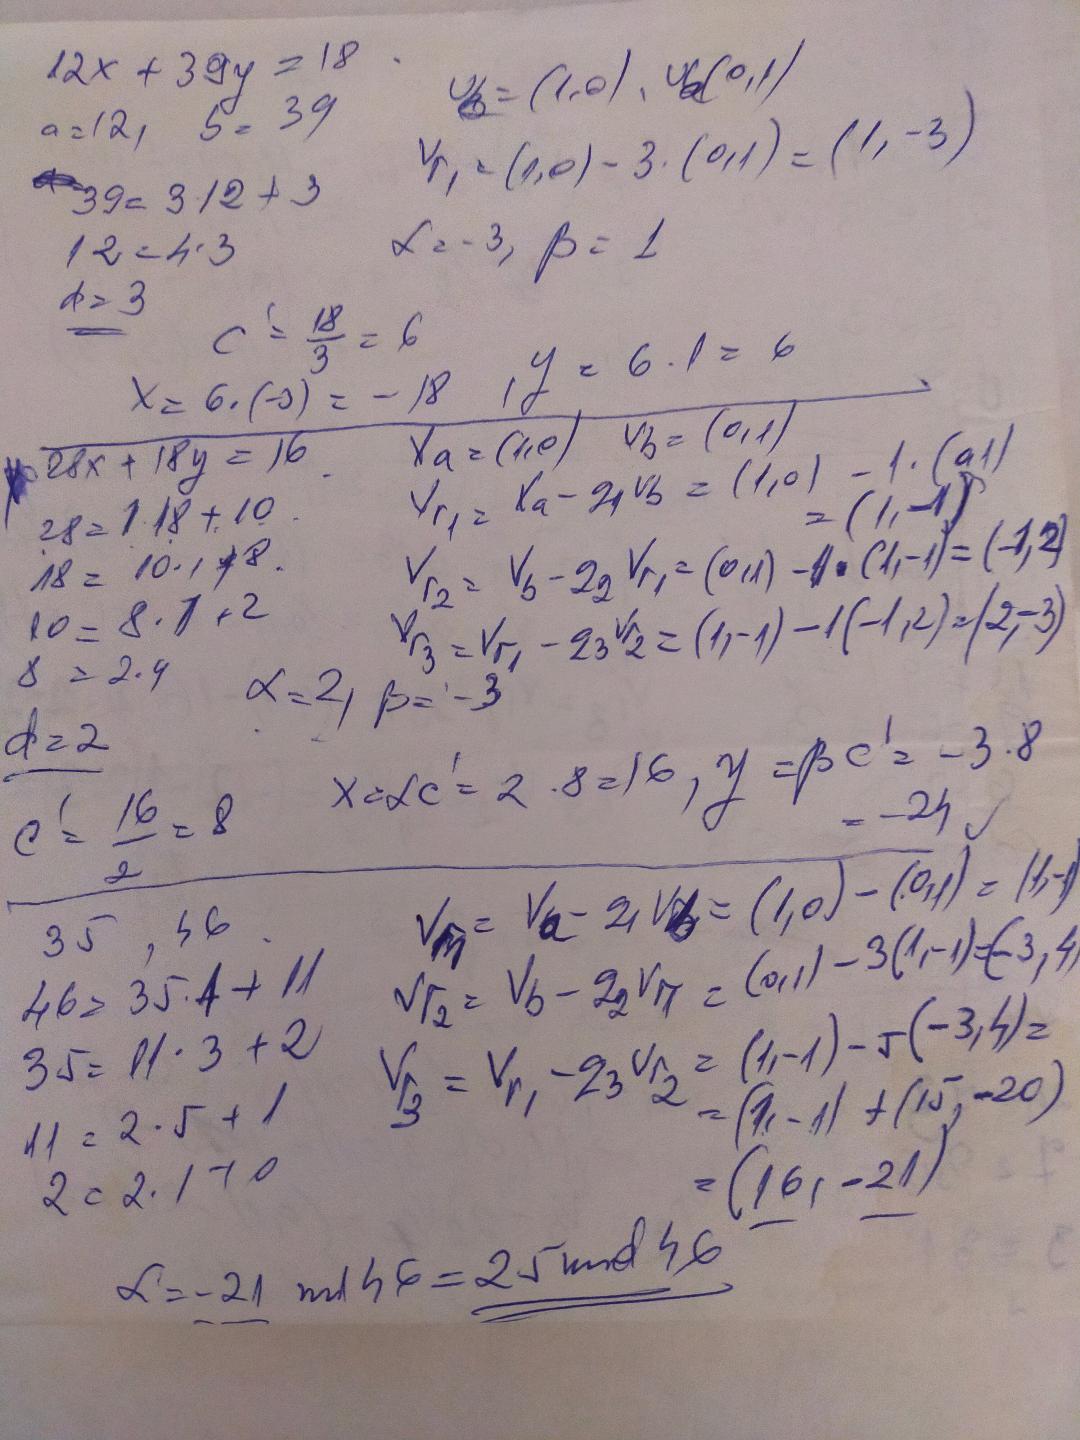 12x + 39y = 18
a=12, b= 39
39= 3·12 + 3
12=4·3
d=3
v_b=(1,0), v_a(0,1)
v_r1 = (1,0) - 3·(0,1) = (1,-3)
α=-3, β=1
c' = 18/3 = 6
x= 6·(-3) = -18, y = 6·1 = 6
28x + 18y = 16
28=1·18+10
18= 10·1+8.
10= 8·1+2
8 =2·4
d=2
c' = 16/2 = 8
Va=(1,0) Vb=(0,1)
Vr1 = Va - q1Vb = (1,0) - 1·(0,1)
= (1,-1)
Vr2= Vb - q2Vr1=(0,1) -1·(1,-1)=(-1,2)
Vr3 = Vr1 - q3Vr2 = (1,-1) -1(-1,2)=(2,-3)
α=2, β=-3
x=αc'= 2·8=16, y =βc'= -3·8
= -24 ✓
35, 46.
46= 35·1+11
35= 11·3+2
11=2·5+1
2=2·1+0
Vr1= Va - q1Vb = (1,0)-(0,1) = (1,-1)
Vr2= Vb - q2Vr1 = (0,1) -3(1,-1)=(-3,4)
Vr3 = Vr1 - q3Vr2 = (1,-1) - 5(-3,4)=
= (1,-1) + (15,-20)
= (16,-21)
α=-21 md 46 = 25 mod 46